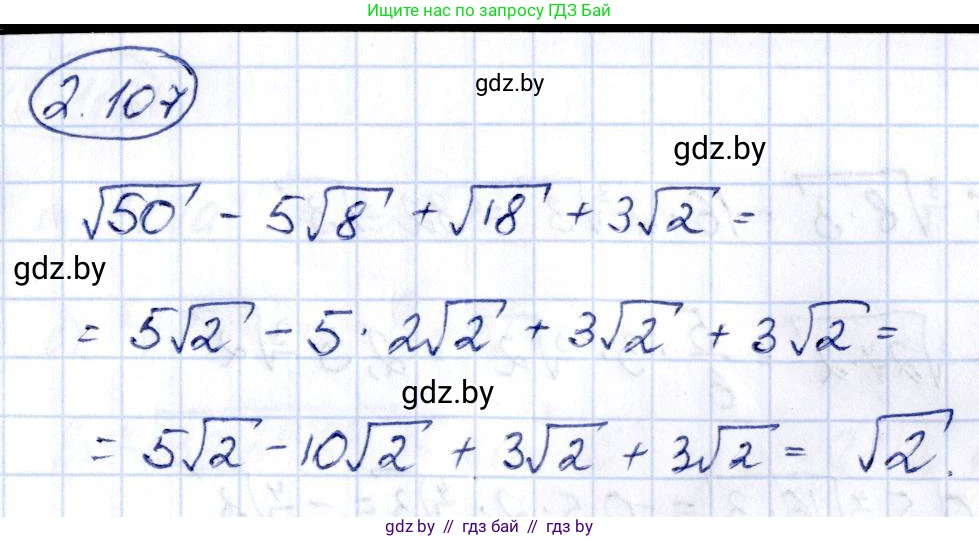 Ищите нас по запросу ГДЗ Бай
2.107
gdz.by
gdz.by
√50 - 5√8 + √18 + 3√2 =
gdz.by
= 5√2 - 5 · 2√2 + 3√2 + 3√2 =
gdz.by
= 5√2 - 10√2 + 3√2 + 3√2 = √2.
gdz.by // гдз бай // гдз by